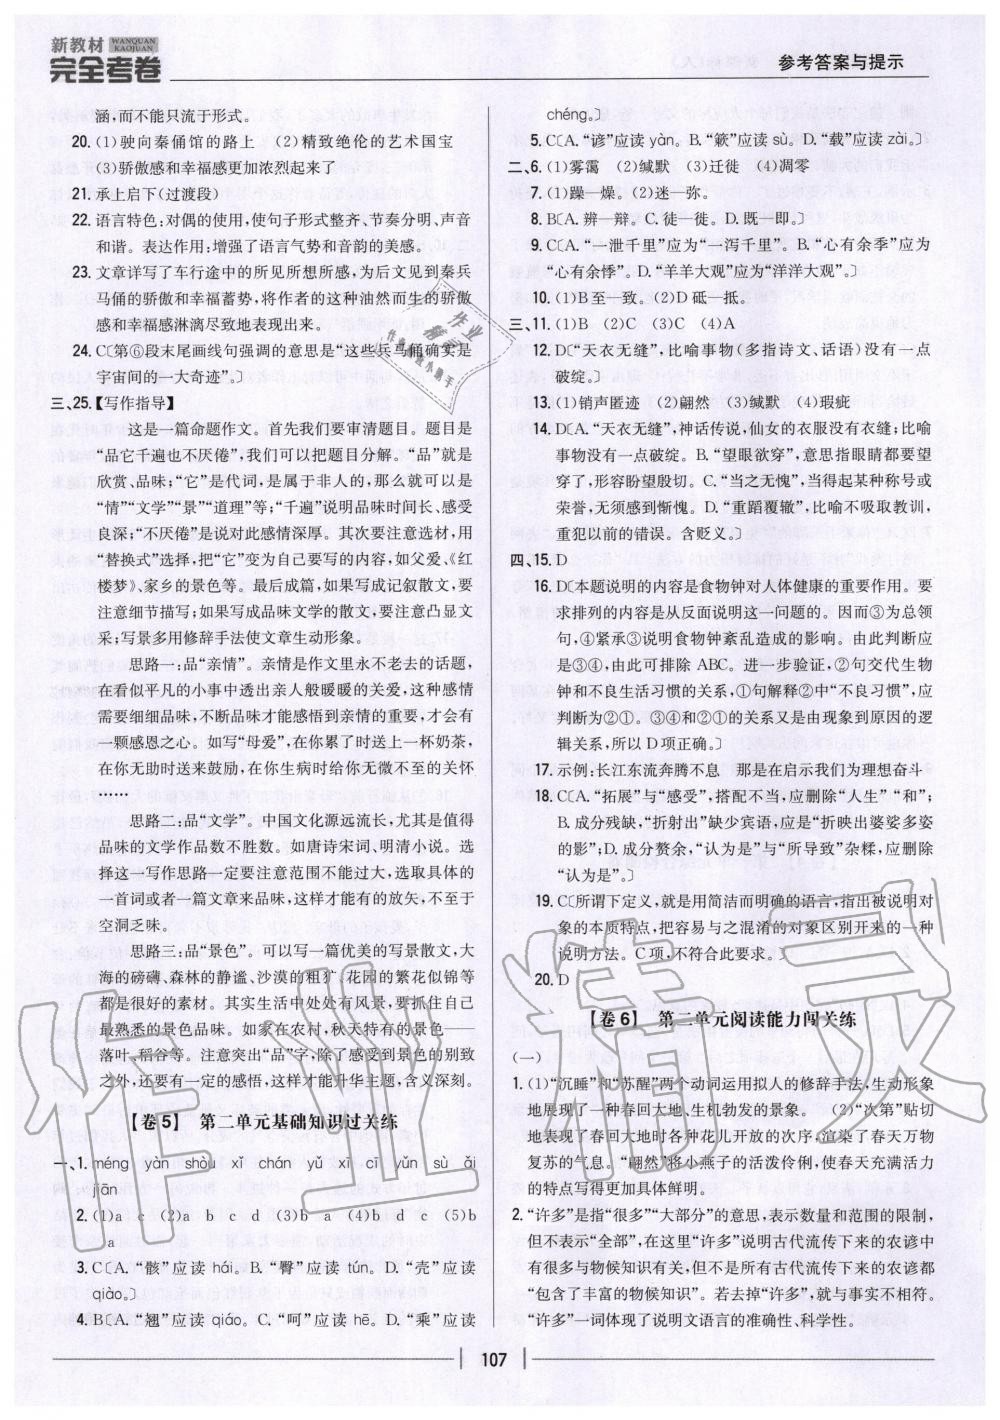 新教材 WANQUAN KAOJUAN
完全考卷
参考答案与提示
涵,而不能只流于形式。
20. (1)驶向秦俑馆的路上 (2)精致绝伦的艺术国宝
(3)骄傲感和幸福感更加浓烈起来了
21. 承上启下(过渡段)
22. 语言特色:对偶的使用,使句子形式整齐、节奏分明、声音
和谐。表达作用:增强了语言气势和音韵的美感。
23. 文章详写了车行途中的所见所想所感,为后文见到秦兵
马俑的骄傲和幸福蓄势,将作者的这种油然而生的骄傲
感和幸福感淋漓尽致地表现出来。
24. C〔第⑥段末尾画线句强调的意思是“这些兵马俑确实是
宇宙间的一大奇迹”。〕
三、25.【写作指导】
这是一篇命题作文。首先我们要审清题目。题目是
“品它千遍也不厌倦”,我们可以把题目分解。“品”就是
欣赏、品味;“它”是代词,是属于非人的,那么就可以是
“情”“文学”“景”“道理”等;“千遍”说明品味时间长、感受
良深;“不厌倦”是说对此感情深厚。其次要注意选材,用
“替换式”选择,把“它”变为自己要写的内容,如父爱、《红
楼梦》、家乡的景色等。最后成篇,如果写成记叙散文,要
注意细节描写;如果写成品味文学的散文,要注意凸显文
采;写景多用修辞手法使文章生动形象。
思路一:品“亲情”。亲情是作文里永不老去的话题,
在看似平凡的小事中透出亲人般暖暖的关爱,这种感情
需要细细品味,不断品味才能感悟到亲情的重要,才会有
一颗感恩之心。如写“母爱”,在你累了时送上一杯奶茶,
在你无助时送来鼓励,在你生病时给你无微不至的关怀
……
思路二:品“文学”。中国文化源远流长,尤其是值得
品味的文学作品数不胜数。如唐诗宋词、明清小说。选
择这一写作思路一定要注意范围不能过大,选取具体的
一首词或者一篇文章来品味,这样才能有的放矢,不至于
空洞乏味。
思路三:品“景色”。可以写一篇优美的写景散文,大
海的磅礴、森林的静谧、沙漠的粗犷、花园的繁花似锦等
都是很好的素材。其实生活中处处有风景,要抓住自己
最熟悉的景色品味。如家在农村,秋天特有的景色——
落叶、稻谷等。注意突出“品”字,除了感受到景色的别致
之外,还要有一定的感悟,这样才能升华主题,含义深刻。
【卷5】 第二单元基础知识过关练
一、1. méng yàn shòu xǐ chán yǔ xī cī yǔn sù ǎi
jiān
2. (1)a c (2)a b c d (3)b a (4)b d c (5)b
a
3. C〔A. “骸”应读 hái。B. “臀”应读 tún。D. “壳”应读
qiào。〕
4. B〔A. “翘”应读 qiáo。C. “呵”应读 hē。D. “乘”应读
chéng。〕
5. C〔A. “谚”应读 yàn。B. “簌”应读 sù。D. “载”应读 zài。〕
二、6. (1)雾霭 (2)缄默 (3)迁徙 (4)凋零
7. (1)躁—燥。(2)迷—弥。
8. B〔A. 辨—辩。C. 徒—徙。D. 既—即。〕
9. C〔A. “一泄千里”应为“一泻千里”。B. “心有余季”应为
“心有余悸”。D. “羊羊大观”应为“洋洋大观”。〕
10. (1)B至—致。(2)D砥—抵。
三、11. (1)B (2)C (3)C (4)A
12. D〔“天衣无缝”,比喻事物(多指诗文、话语)没有一点
破绽。〕
13. (1)销声匿迹 (2)翩然 (3)缄默 (4)瑕疵
14. D〔A. “天衣无缝”,神话传说,仙女的衣服没有衣缝;比喻
事物没有一点破绽。B. “望眼欲穿”,意思指眼睛都要望
穿了,形容盼望殷切。C. “当之无愧”,当得起某种称号或
荣誉,无须感到惭愧。D. “重蹈覆辙”,比喻不吸取教训,
重犯以前的错误。含贬义。〕
四、15. D
16. D〔本题说明的内容是食物钟对人体健康的重要作用。要
求排列的内容是从反面说明这一问题的。因而③为总领
句,④紧承③说明食物钟紊乱造成的影响。由此判断应
是③④,由此可排除 ABC。进一步验证,②句交代生物
钟和不良生活习惯的关系,①句解释②中“不良习惯”,应
判断为②①。③④和②①的关系又是由现象到原因的逻
辑关系,所以 D 项正确。〕
17. 示例:长江东流奔腾不息 那是在启示我们为理想奋斗
18. C〔A. “拓展”与“感受”,搭配不当,应删除“人生”“和”;
B. 成分残缺,“折射出”缺少宾语,应是“折映出婆娑多姿
的影”;D. 成分赘余,“认为是”与“所导致”杂糅,应删除
“认为是”。〕
19. C〔所谓下定义,就是用简洁而明确的语言,指出被说明对
象的本质特点,把容易与之混淆的对象区别开来的一种
说明方法。C 项,不符合此要求。〕
20. D
【卷6】 第二单元阅读能力闯关练
(一)
1. (1)“沉睡”和“苏醒”两个动词运用拟人的修辞手法,生动形象
地展现了一种春回大地、生机勃发的景象。 (2)“次第”贴切
地表现了春回大地时各种花儿开放的次序,渲染了春天万物
复苏的气息。“翩然”将小燕子的活泼伶俐,使春天充满活力
的特点写得更加具体鲜明。
2. “许多”是指“很多”“大部分”的意思,表示数量和范围的限制,
但不表示“全部”,在这里“许多”说明古代流传下来的农谚中
有很多与物候知识有关,但不是所有古代流传下来的农谚都
“包含了丰富的物候知识”。若去掉“许多”,就与事实不相符。
“许多”一词体现了说明文语言的准确性、科学性。
107
作业精灵